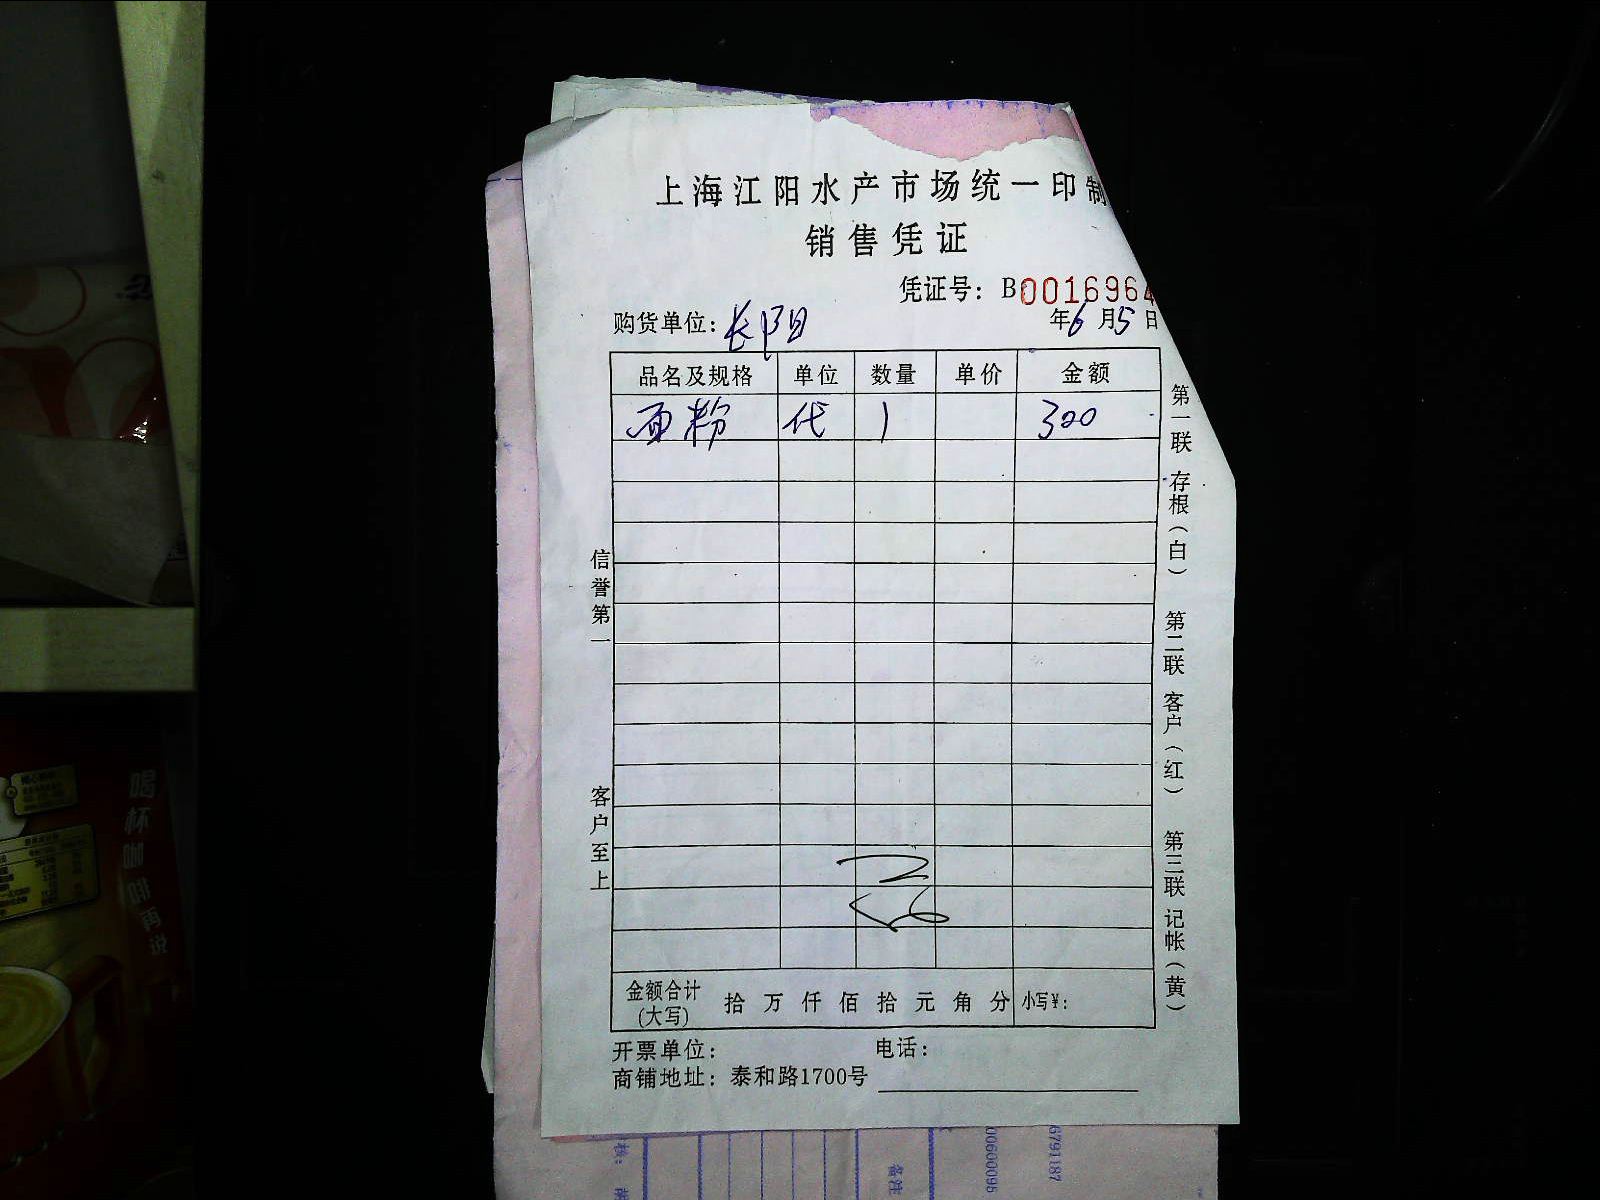 上海江阳水产市场统一印制
销售凭证
凭证号：B0016964
购货单位：长阳 年6月5日
品名及规格 单位 数量 单价 金额
面粉 代 1 300
信誉第一
客户至上
第一联 存根（白） 第二联 客户（红） 第三联 记帐（黄）
金额合计(大写) 拾 万 仟 佰 拾 元 角 分 小写￥：
开票单位： 电话：
商铺地址：泰和路1700号
备注
00600095
6791187
喝杯咖啡再说